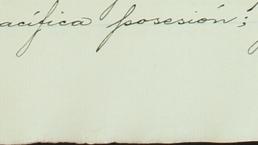 acífica posesión;